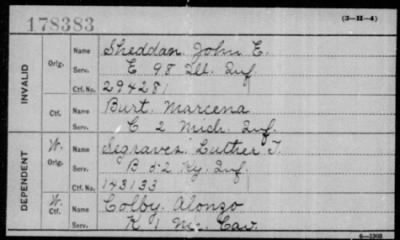 178383
(3—11—4)
INVALID
Orig.
Name Sheddan, John E.
Serv. E 98 Ill. Inf.
Ctf. No. 294281
Ctf.
Name Burt, Marcena
Serv. C 2 Mich. Inf.
DEPENDENT
W. Orig.
Name Segraves, Luther T.
Serv. B 52 Ky. Inf.
Ctf. No. 143133
W. Ctf.
Name Colby, Alonzo
K 1 Me. Cav.
6—1903